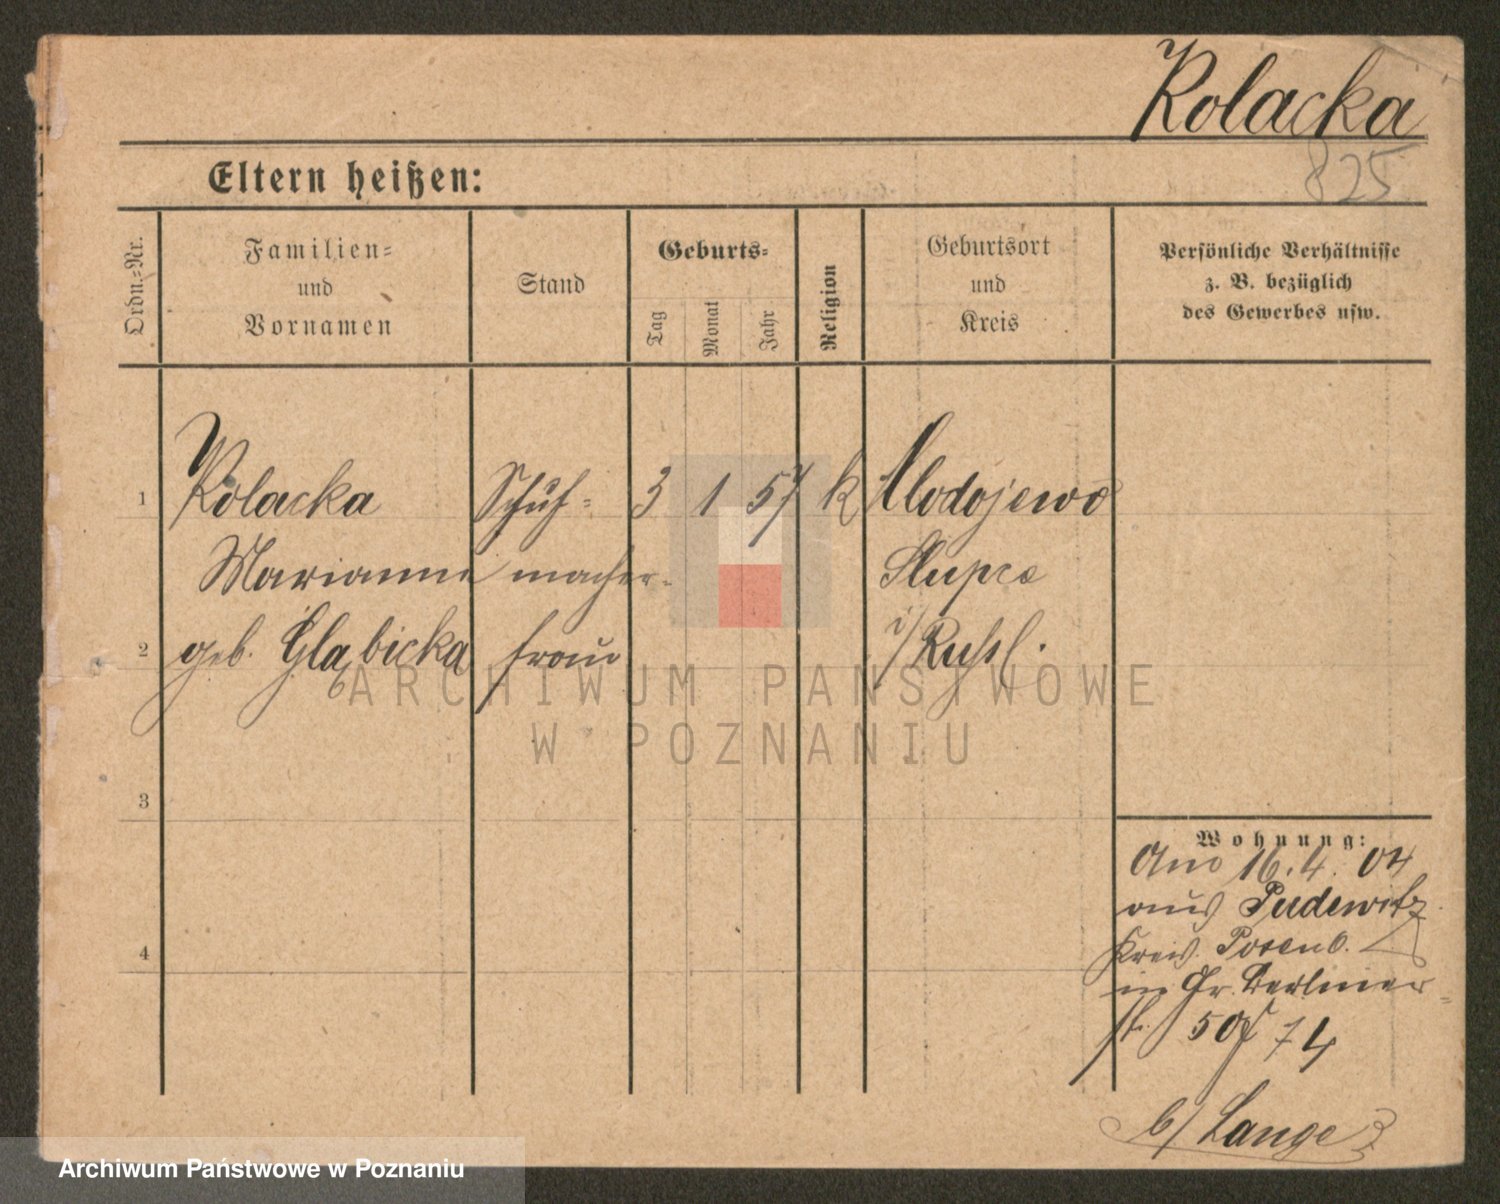 Rolacka
825
Eltern heißen:
Ordn.-Nr.
Familien-
und
Vornamen
Stand
Geburts-
Tag
Monat
Jahr
Religion
Geburtsort
und
Kreis
Persönliche Verhältnisse
z. B. bezüglich
des Gewerbes usw.
1 Rolacka Schuh- 3 1 57 k Mlodojewo
Marianna macher- Slupca
2 geb. Głąbicka frau i/ Russl.
3
4
Wohnung:
Am 16. 4. 04
aus Pudewitz
Kreis Posen O.
in Gr. Berliner-
st. 50 74
b/ Lange
ARCHIWUM PAŃSTWOWE
W POZNANIU
Archiwum Państwowe w Poznaniu